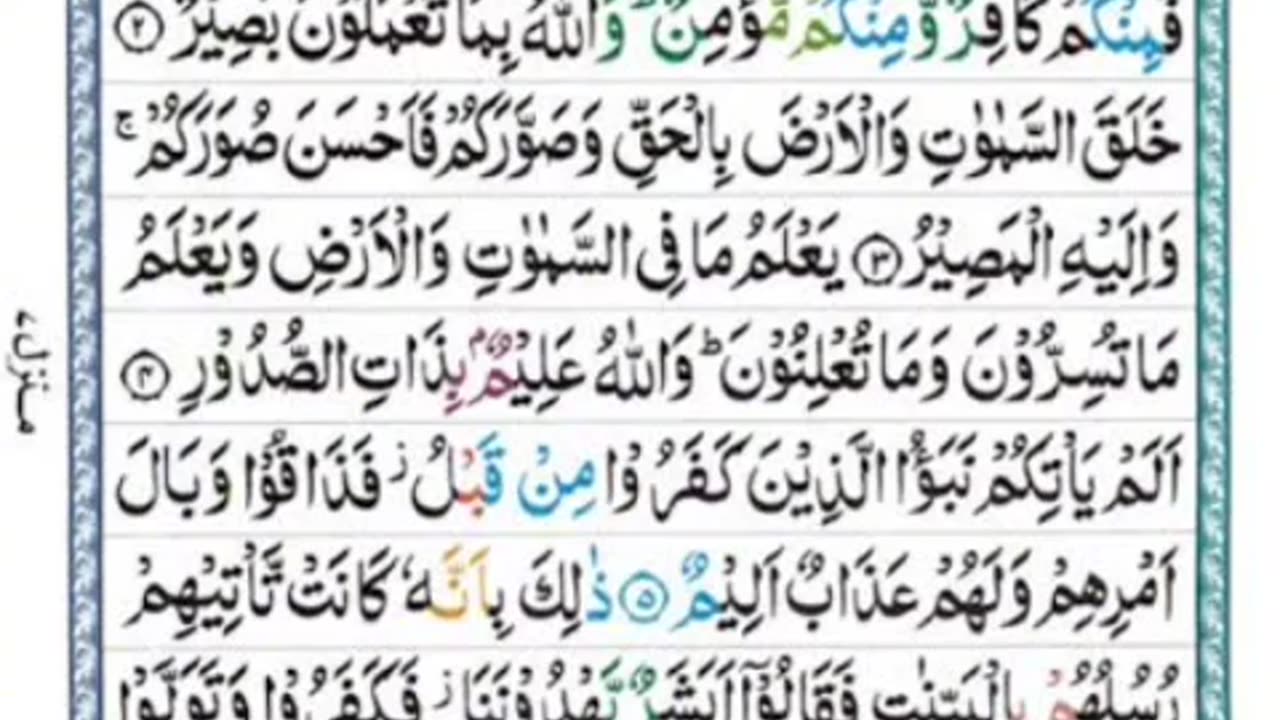 فَمِنْكُمْ كَافِرٌ وَّمِنْكُمْ مُّؤْمِنٌ ؕ وَاللّٰهُ بِمَا تَعْمَلُوْنَ بَصِيْرٌ ۝۲
خَلَقَ السَّمٰوٰتِ وَالْاَرْضَ بِالْحَقِّ وَصَوَّرَكُمْ فَاَحْسَنَ صُوَرَكُمْ ۚ
وَاِلَيْهِ الْمَصِيْرُ ۝۳ يَعْلَمُ مَا فِى السَّمٰوٰتِ وَالْاَرْضِ وَيَعْلَمُ
مَا تُسِرُّوْنَ وَمَا تُعْلِنُوْنَ ؕ وَاللّٰهُ عَلِيْمٌۢ بِذَاتِ الصُّدُوْرِ ۝۴
اَلَمْ يَاْتِكُمْ نَبَؤُا الَّذِيْنَ كَفَرُوْا مِنْ قَبْلُ ز فَذَاقُوْا وَبَالَ
اَمْرِهِمْ وَلَهُمْ عَذَابٌ اَلِيْمٌ ۝۵ ذٰلِكَ بِاَنَّهٗ كَانَتْ تَّاْتِيْهِمْ
رُسُلُهُمْ بِالْبَيِّنٰتِ فَقَالُوْۤا اَبَشَرٌ يَّهْدُوْنَنَا ز فَكَفَرُوْا وَتَوَلَّوْا
منزل ۷